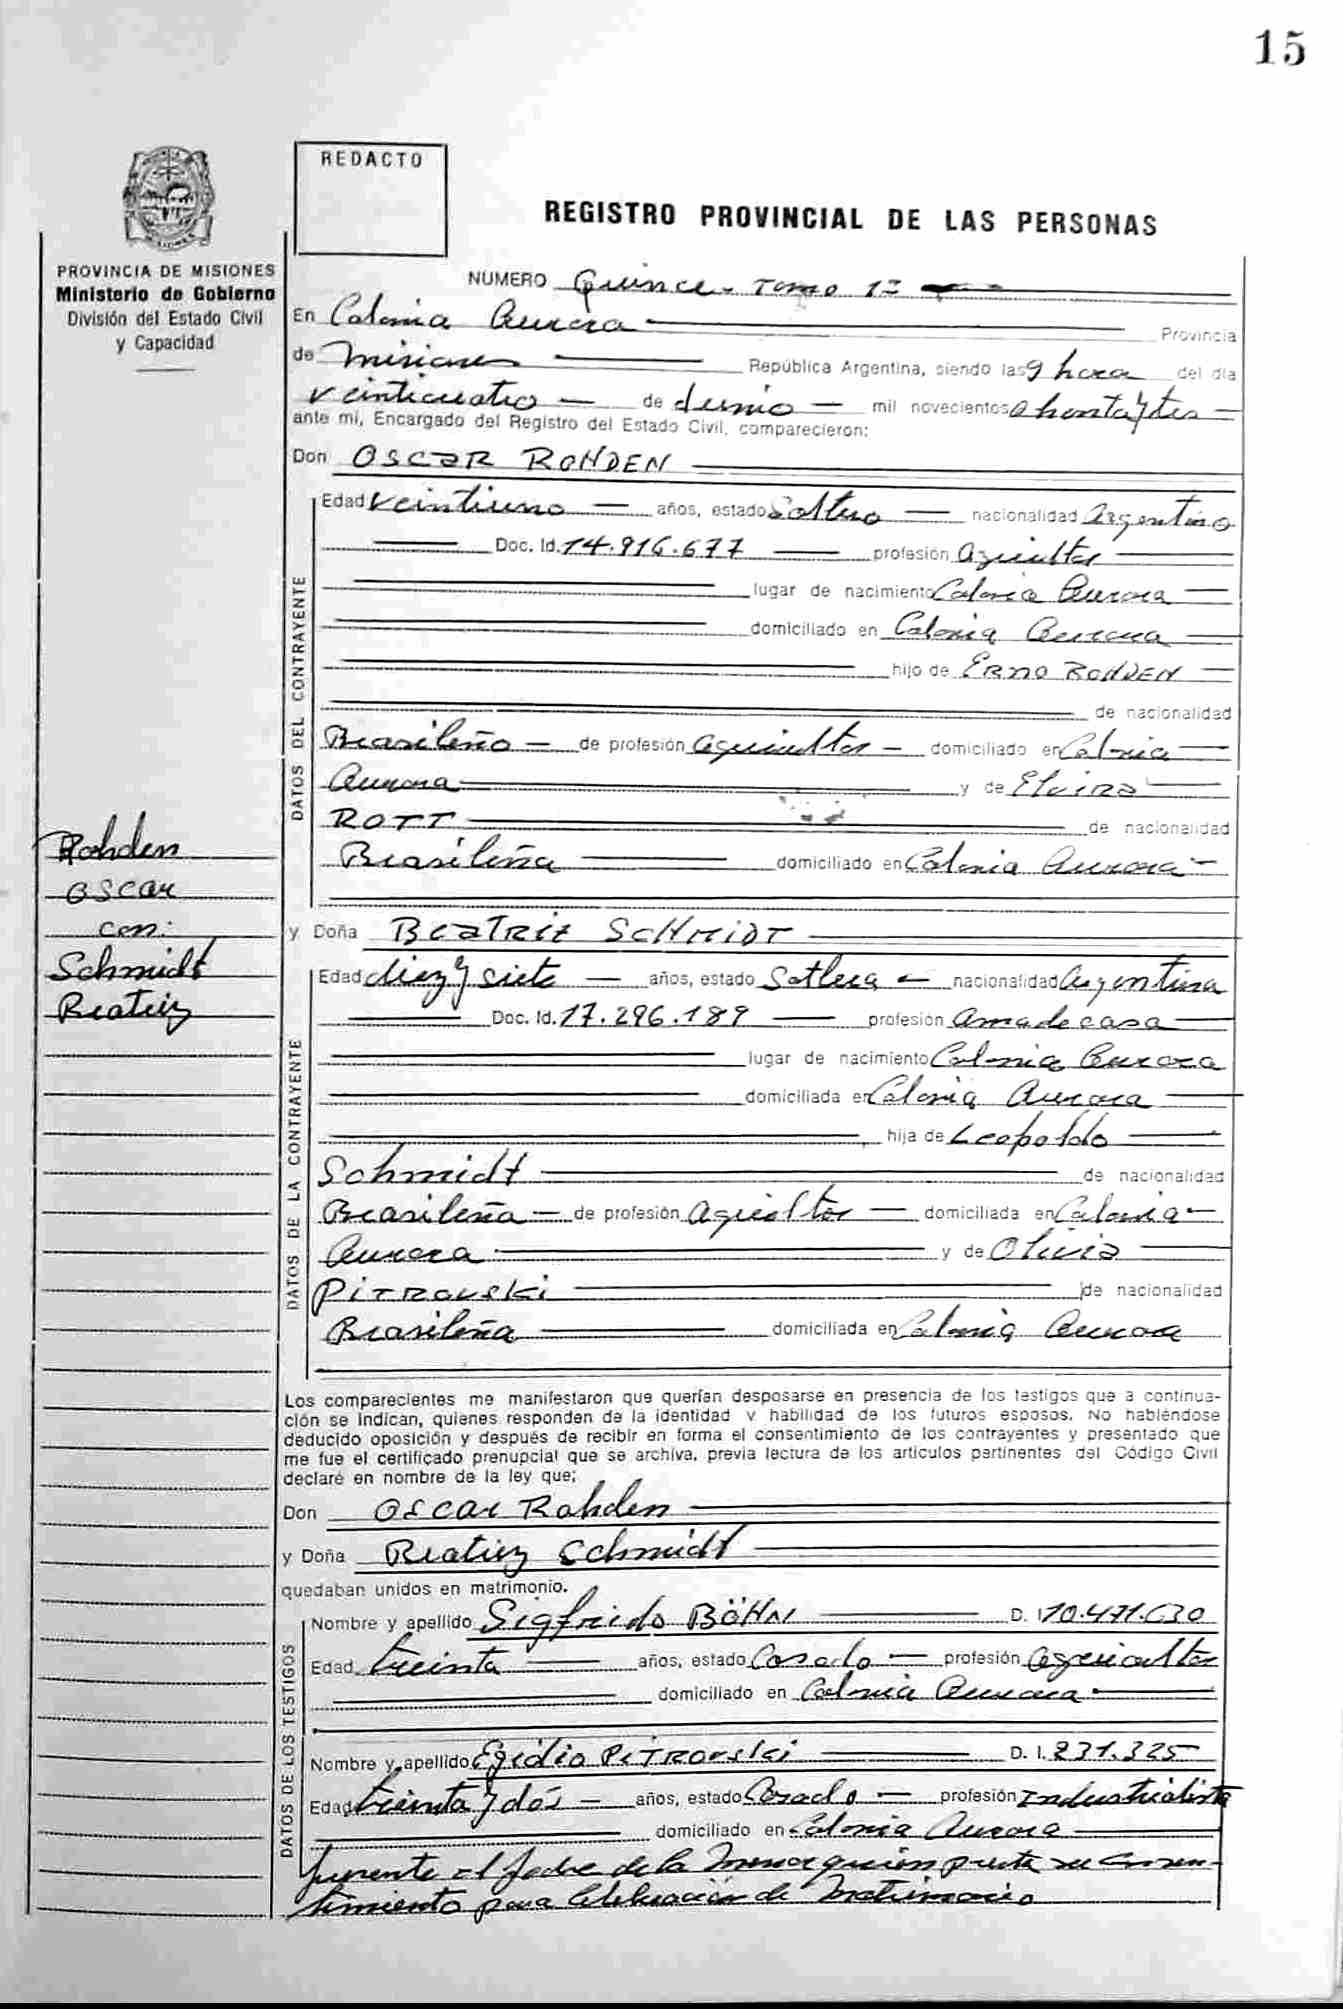 15
REDACTO
REGISTRO PROVINCIAL DE LAS PERSONAS
PROVINCIA DE MISIONES
Ministerio de Gobierno
División del Estado Civil
y Capacidad
NUMERO Quince - Tomo 1º
En Colonia Aurora Provincia
de Misiones República Argentina, siendo las 9 hora del día
veinticuatro de Junio mil novecientos ochentaytres
ante mí, Encargado del Registro del Estado Civil, comparecieron:
Don OSCAR ROHDEN
DATOS DEL CONTRAYENTE
Edad veintiuno años, estado Soltero nacionalidad Argentino
Doc. Id. 14.916.677 profesión Agricultor
lugar de nacimiento Colonia Aurora
domiciliado en Colonia Aurora
hijo de ERNO ROHDEN
de nacionalidad
Brasileño de profesión Agricultor domiciliado en Colonia
Aurora y de Elvira
ROTT de nacionalidad
Brasileña domiciliado en Colonia Aurora
Rohden
Oscar
con:
Schmidt
Beatriz
y Doña BEATRIZ SCHMIDT
DATOS DE LA CONTRAYENTE
Edad diez y siete años, estado Soltera nacionalidad Argentina
Doc. Id. 17.296.189 profesión Ama de casa
lugar de nacimiento Colonia Aurora
domiciliada en Colonia Aurora
hija de Leopoldo
Schmidt de nacionalidad
Brasileña de profesión Agricoltor domiciliada en Colonia
Aurora y de Olivia
PITROVSKI de nacionalidad
Brasileña domiciliada en Colonia Aurora
Los comparecientes me manifestaron que querían desposarse en presencia de los testigos que a continua-
ción se indican, quienes responden de la identidad y habilidad de los futuros esposos. No habiéndose
deducido oposición y después de recibir en forma el consentimiento de los contrayentes y presentado que
me fue el certificado prenupcial que se archiva, previa lectura de los artículos pertinentes del Código Civil
declaré en nombre de la ley que;
Don Oscar Rohden
y Doña Beatriz Schmidt
quedaban unidos en matrimonio.
DATOS DE LOS TESTIGOS
Nombre y apellido Sigfrido BÖHN D. I. 10.471.030
Edad treinta años, estado Casado profesión Agricultor
domiciliado en Colonia Aurora
Nombre y apellido Egidio PITROVSKI D. I. 231.325
Edad treinta y dós años, estado Casado profesión Industrialista
domiciliado en Colonia Aurora
el Padre de la menor quien presta su consen-
timiento para Celebración de Matrimonio